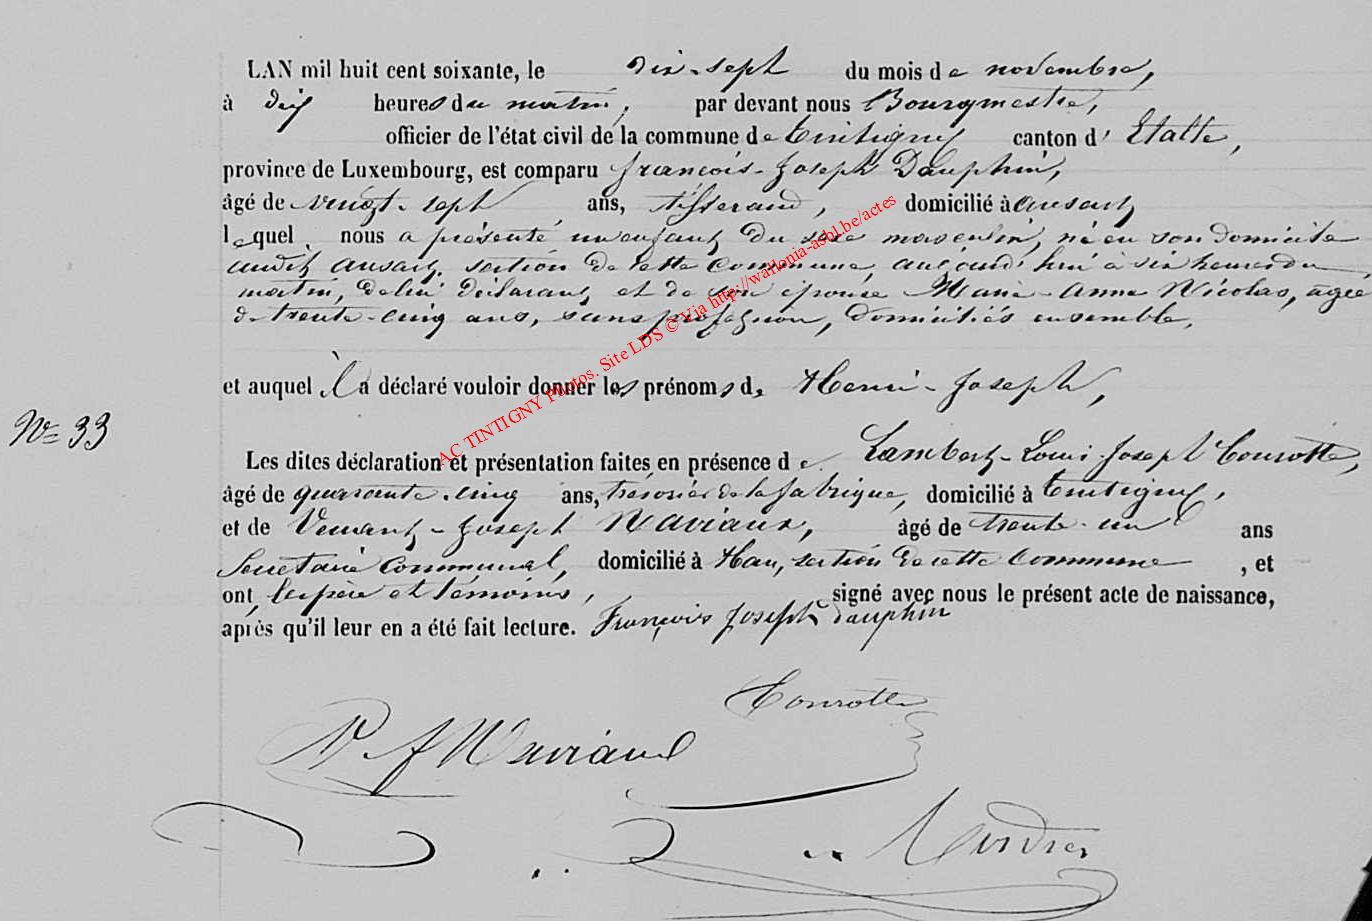 LAN mil huit cent soixante, le dix-sept du mois de novembre,
à dix heures du matin, par devant nous Bourgmestre,
officier de l'état civil de la commune de Tintigny canton d' Etalle,
province de Luxembourg, est comparu François-Joseph Dauphin,
âgé de vingt-sept ans, tisserand, domicilié à ansart
lequel nous a présenté un enfant du sexe masculin, né en son domicile
audit ansart, section de cette commune, aujourd'hui à six heures du
matin, de lui déclarant et de son épouse Marie-Anne Nicolas, agée
de trente-cinq ans, sans profession, domiciliés ensemble,
et auquel il a déclaré vouloir donner les prénoms de Henri-Joseph,
N° 33
Les dites déclaration et présentation faites en présence de Lambert-Louis-Joseph
âgé de quarante-cinq ans, trésorier de la fabrique, domicilié à Tintigny,
et de Venant-Joseph âgé de trente-un ans
Secrétaire communal, domicilié à Han, section de cette commune, et
ont, les père et témoins, signé avec nous le présent acte de naissance,
après qu'il leur en a été fait lecture. François joseph dauphin
AC TINTIGNY Photos. Site LDS © Via http://wallonia-asbl.be/actes